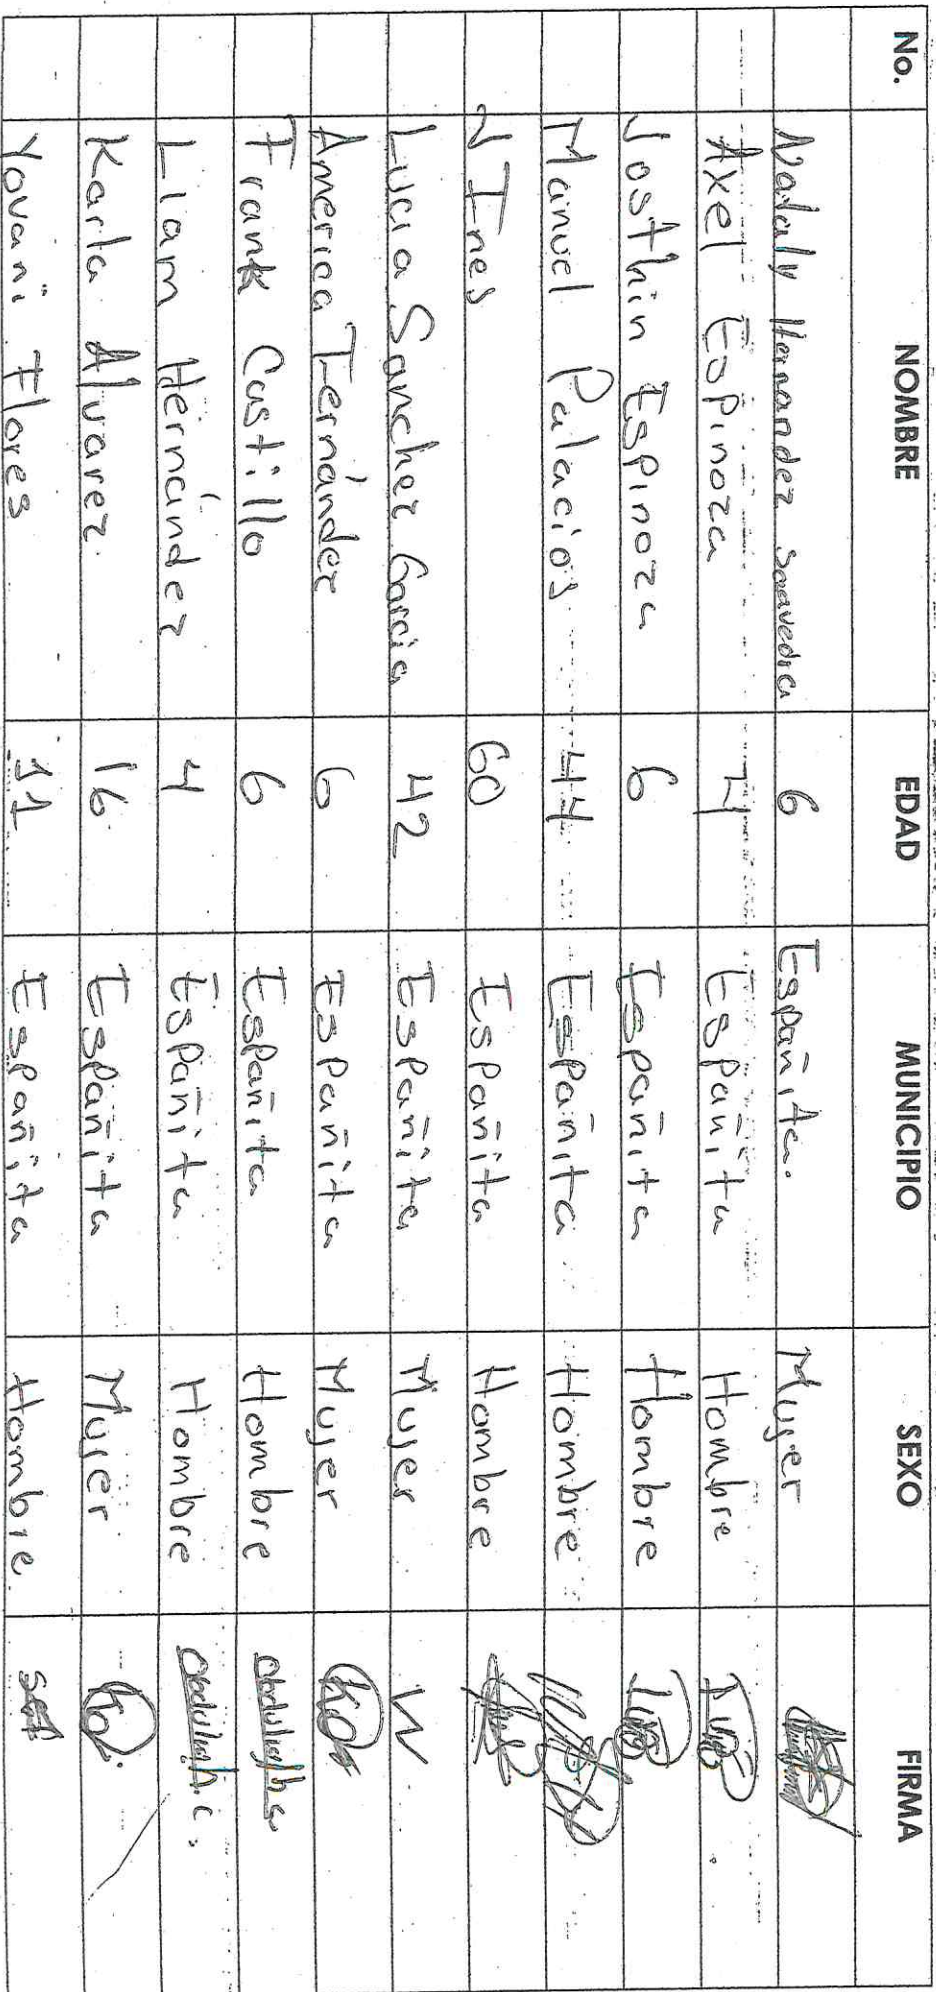 No. NOMBRE EDAD MUNICIPIO SEXO FIRMA
Nataly Hernandez Saavedra 6 Españita. Mujer
Axel Espinoza 4 Españita Hombre
Josthin Espinoza 6 Españita Hombre
Manuel Palacios 44 Españita Hombre
J Ines 60 Españita Hombre
Lucia Sanchez Garcia 42 Españita Mujer
America Fernández 6 Españita Mujer
Frank Castillo 6 Españita Hombre
Liam Hernández 4 Españita Hombre
Karla Alvarez. 16 Españita Mujer
Yovani Flores 11 Españita Hombre